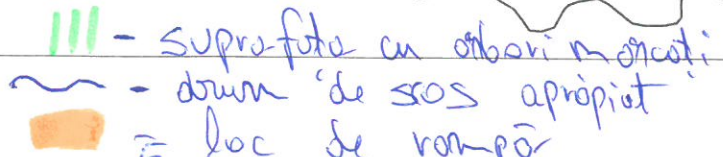 - suprafata cu arbori marcati
- drum de scos apropiat
= loc de rampă